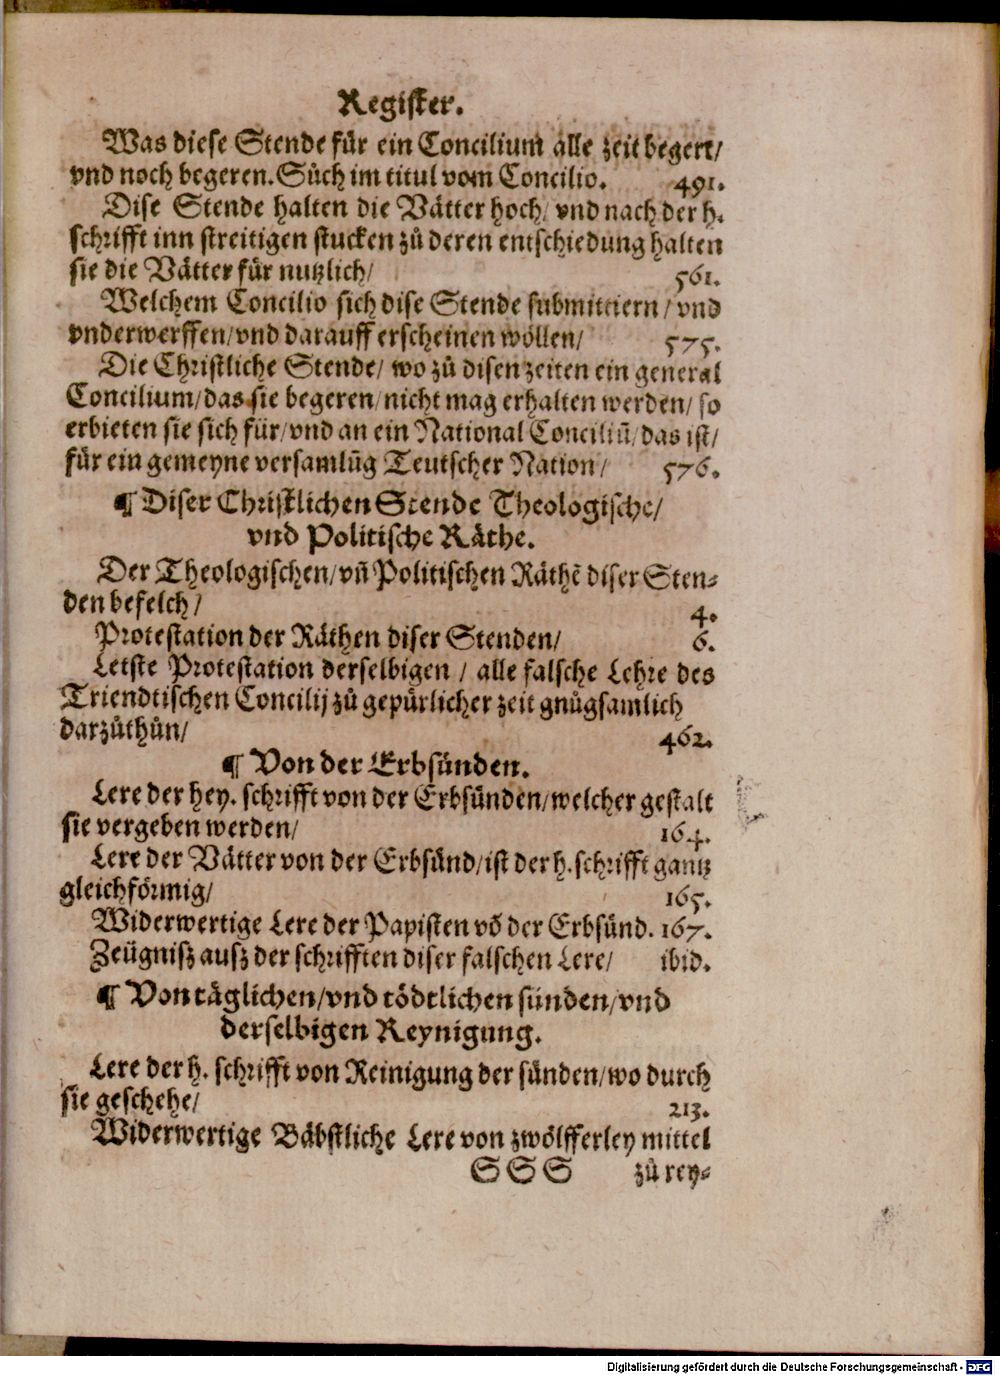 Register.
Was diese Stende für ein Concilium alle zeit begert/
vnd noch begeren. Sůch im titul vom Concilio. 491.
Dise Stende halten die Vätter hoch/ vnd nach der h.
schrifft inn streitigen stucken zů deren entschiedung halten
sie die Vätter für nutzlich/ 561.
Welchem Concilio sich dise Stende submittiern/ vnd
vnderwerffen/ vnd darauff erscheinen wöllen/ 575.
Die Christliche Stende/ wo zů disen zeiten ein general
Concilium/ das sie begeren/ nicht mag erhalten werden/ so
erbieten sie sich für/ vnd an ein National Conciliū/ das ist/
für ein gemeyne versamlūg Teutscher Nation/ 576.
¶ Diser Christlichen Stende Theologische/
vnd Politische Räthe.
Der Theologischen/ vñ Politischen Räthē diser Sten-
den befelch/ 4.
Protestation der Räthen diser Stenden/ 6.
Letste Protestation derselbigen/ alle falsche Lehre des
Triendtischen Concilij zů gepürlicher zeit gnůgsamlich
darzůthůn/ 462.
¶ Von der Erbsünden.
Lere der hey. schrifft von der Erbsünden/ welcher gestalt
sie vergeben werden/ 164.
Lere der Vätter von der Erbsünd/ ist der h. schrifft gantz
gleichförmig/ 165.
Widerwertige Lere der Papisten vō der Erbsünd. 167.
Zeügnisz ausz der schrifften diser falschen Lere/ ibid.
¶ Von täglichen/ vnd tödtlichen sünden/ vnd
derselbigen Reynigung.
Lere der h. schrifft von Reinigung der sünden/ wo durch
sie geschehe/ 213.
Widerwertige Bäbstliche Lere von zwölfferley mittel
SSS zů rey-
Digitalisierung gefördert durch die Deutsche Forschungsgemeinschaft - DFG